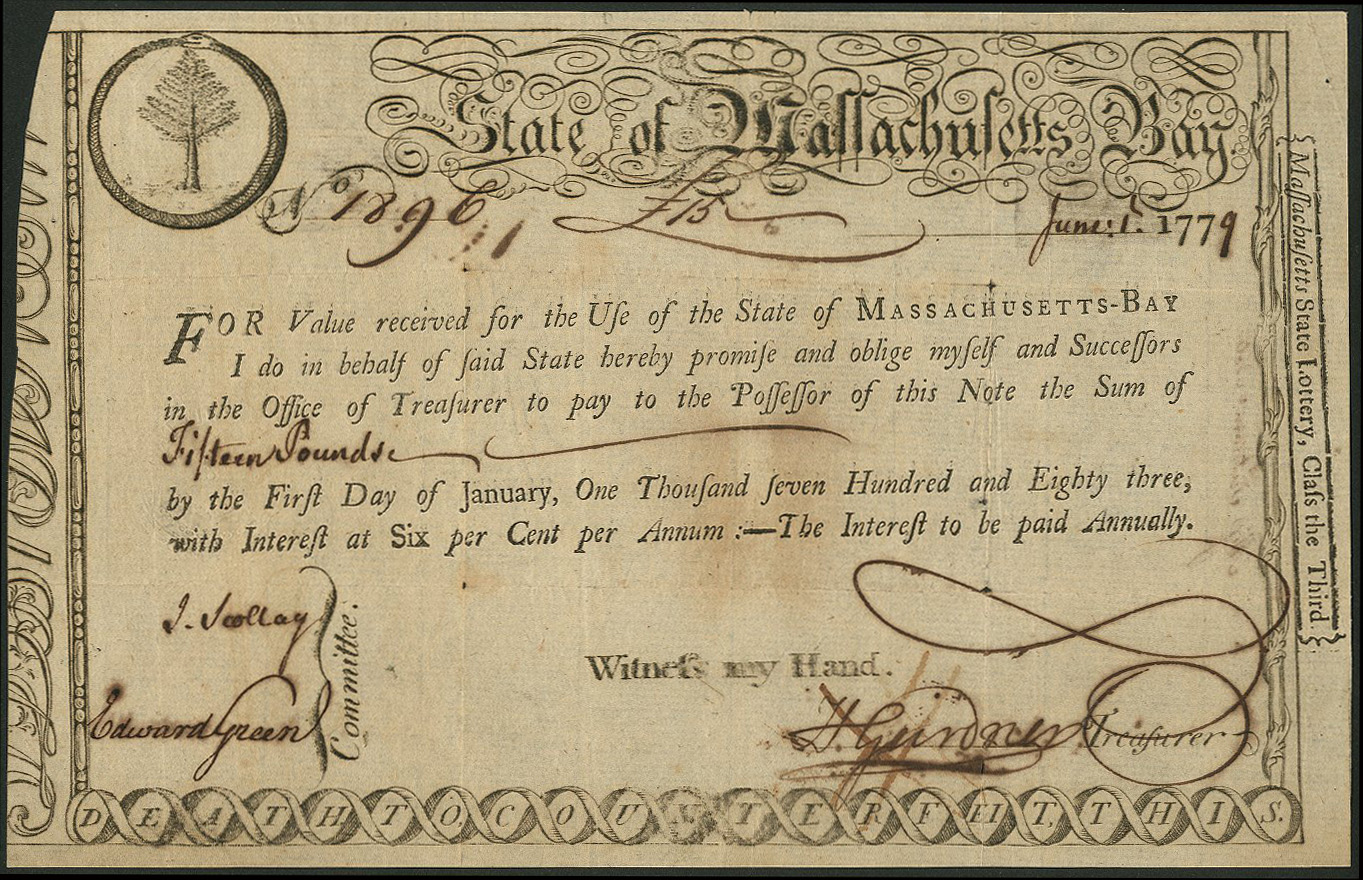 State of Maſſachuſetts Bay.
No. 1896 £15 June 1. 1779
FOR Value received for the Uſe of the State of MASSACHUSETTS-BAY
I do in behalf of ſaid State hereby promiſe and oblige myſelf and Succeſſors
in the Office of Treaſurer to pay to the Poſſeſſor of this Note the Sum of
Fifteen Pounds
by the Firſt Day of January, One Thouſand ſeven Hundred and Eighty three,
with Intereſt at Six per Cent per Annum :—The Intereſt to be paid Annually.
J. Scollay
Edward Green
Committee.
Witneſs my Hand.
H. Gardner Treaſurer
DEATH TO. COUNTERFEIT. THIS.
{Maſſachuſetts State Lottery, Claſs the Third.}